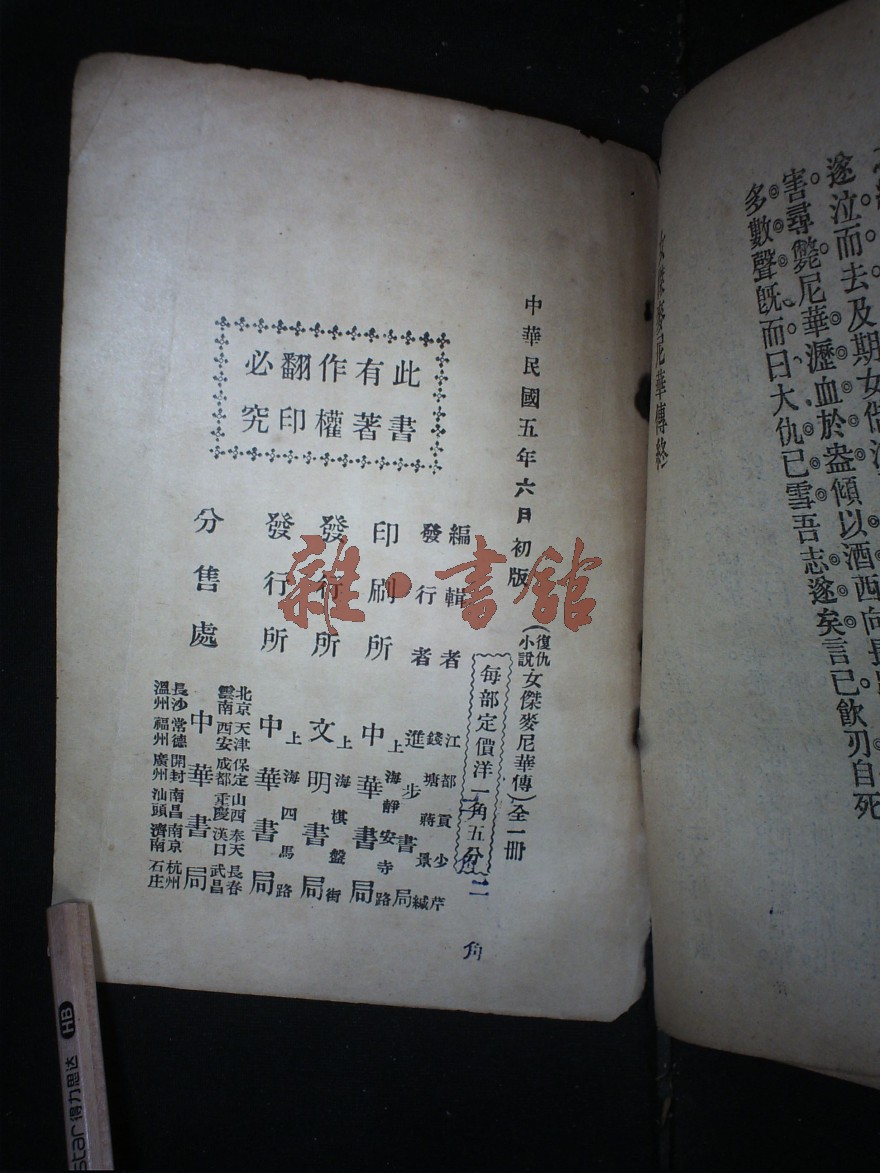 遂泣而去及期女偕
害尋斃尼華瀝血於盎傾以酒西向長
多數聲旣而曰大仇已雪吾志遂矣言已飮刃自死
女傑麥尼華傳終
中華民國五年六月初版
(復仇小說女傑麥尼華傳)全一册
每部定價洋一角五分
二角
此書
有著
作權
翻印
必究
編輯者
江都貢少芹
錢塘蔣景緘
發行者
進步書局
印刷所
上海靜安寺路
中華書局
發行所
上海棋盤街
文明書局
發行所
上海四馬路
中華書局
分售處
北京天津保定山西奉天長春
雲南西安成都重慶漢口武昌
中華書局
長沙常德開封南昌南京杭州
溫州福州廣州汕頭濟南石庄
雜·書館
HB
star 得力思达